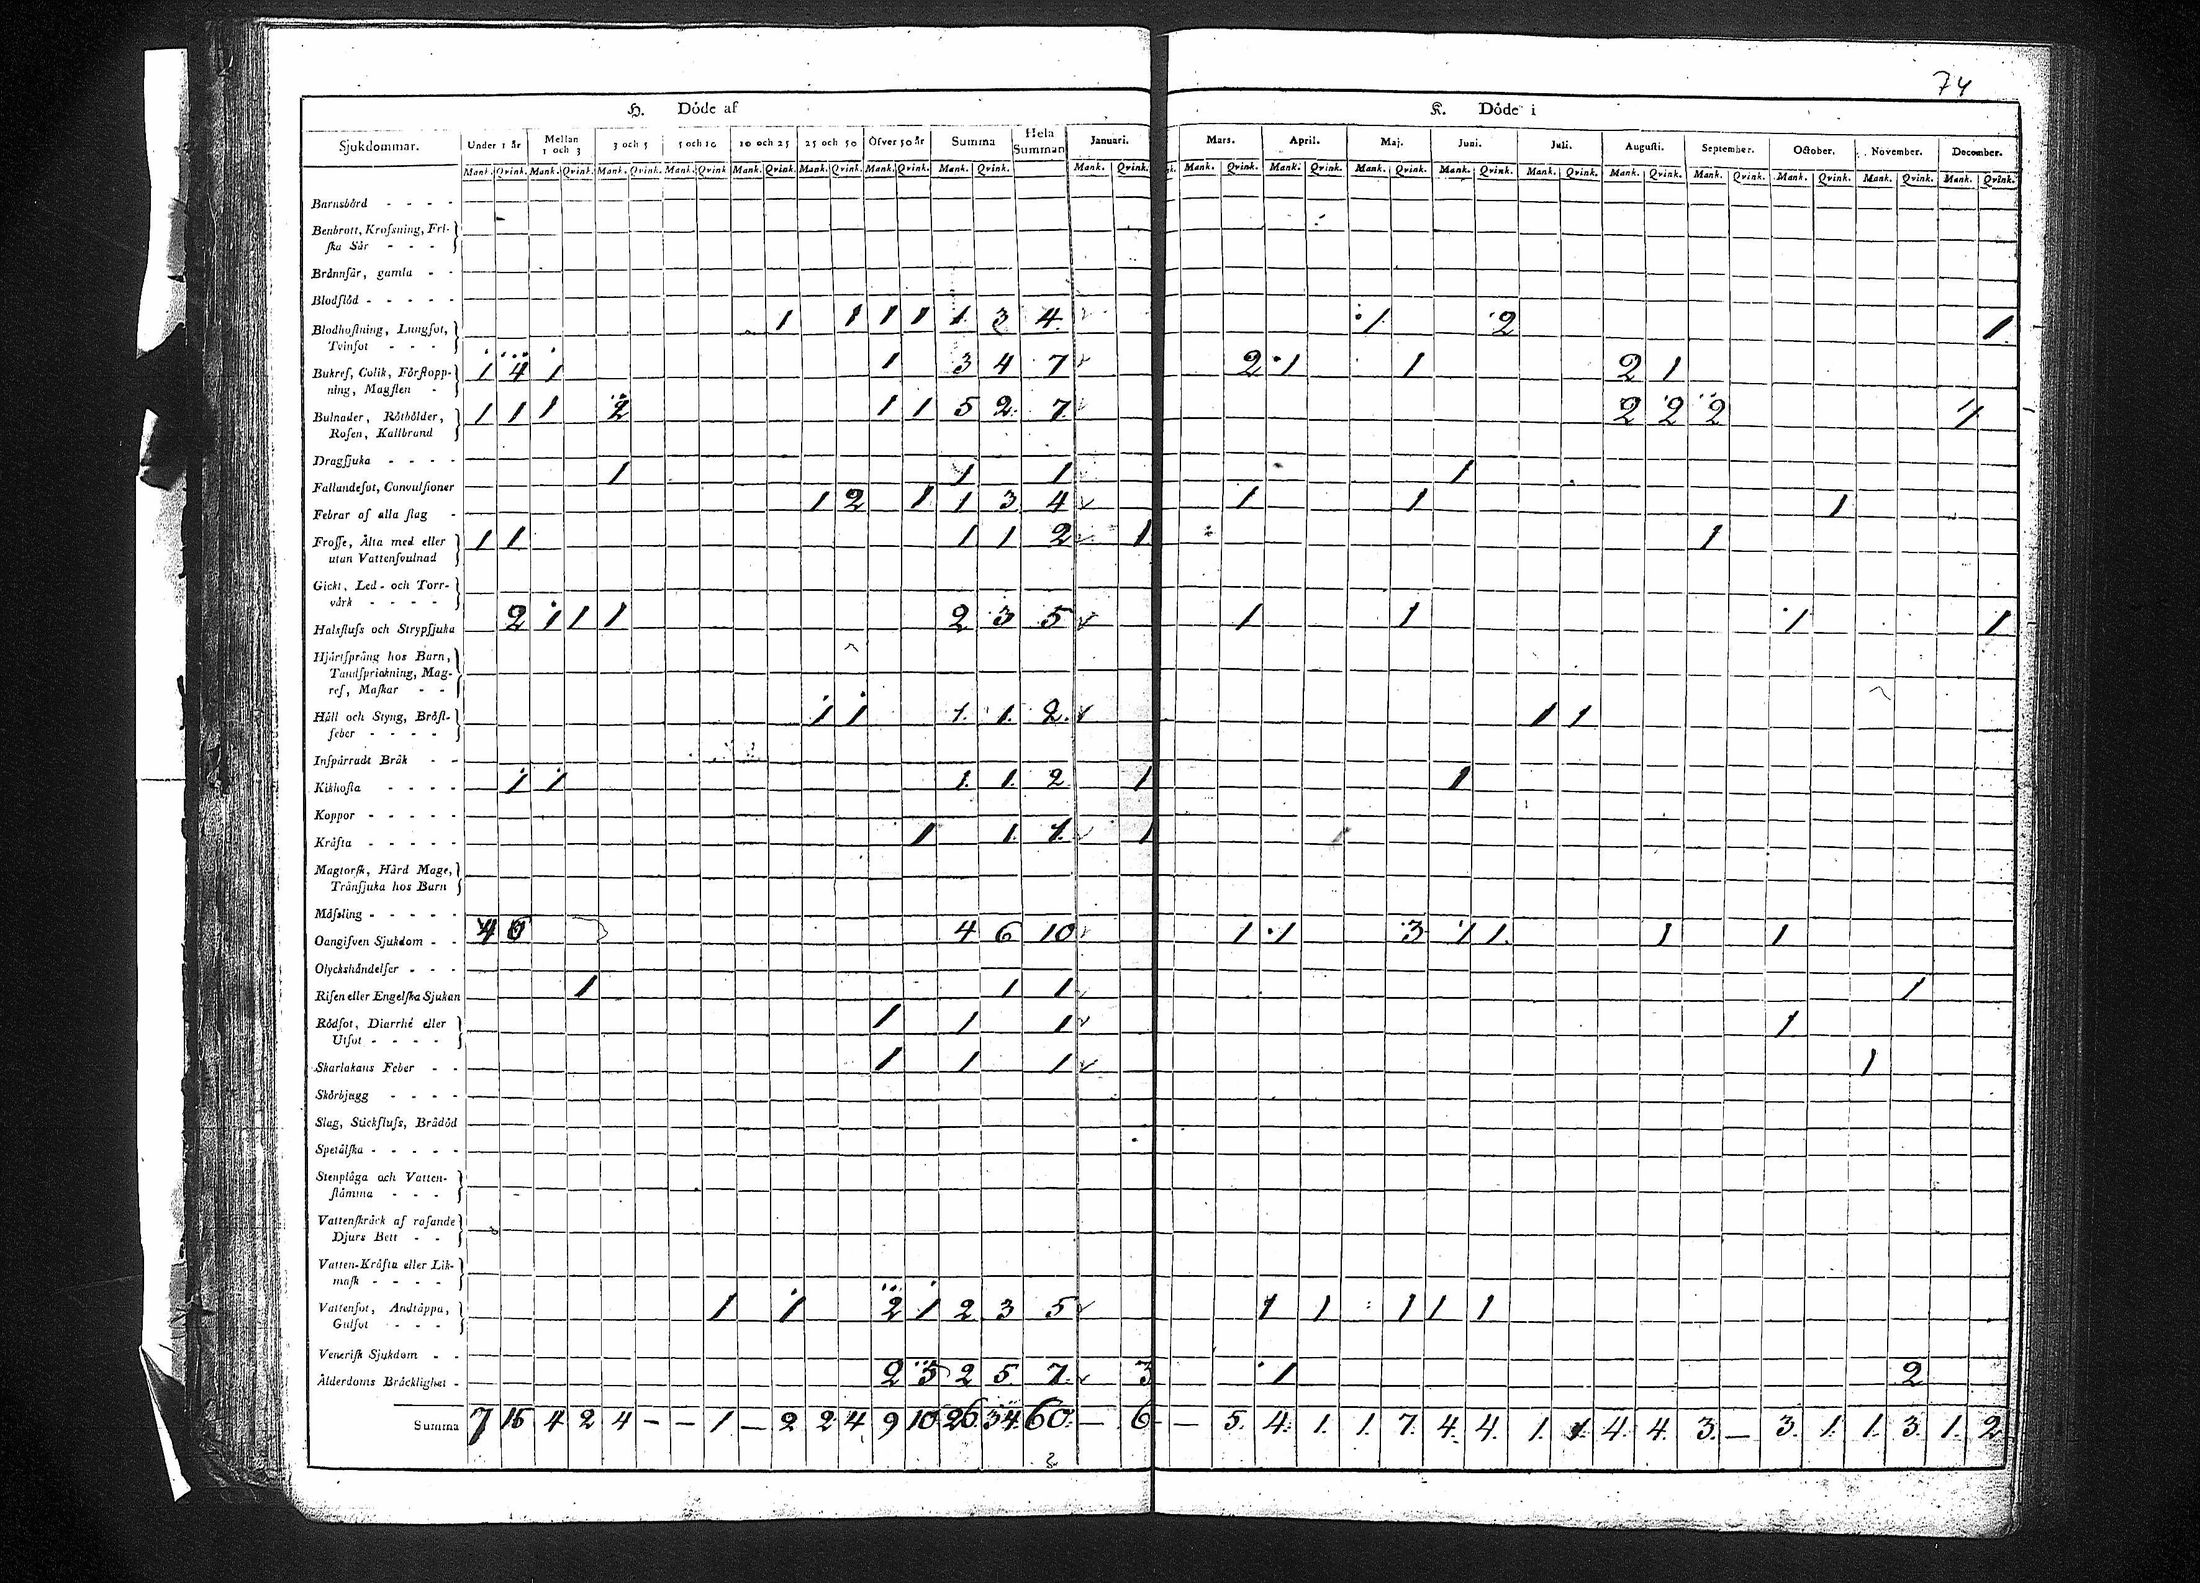 74
H. Döde af K. Döde i
Sjukdommar. Under 1 år Mellan 1 och 3 3 och 5 5 och 10 10 och 25 25 och 50 Öfver 50 år Summa Hela Summan Januari. Mars. April. Maj. Juni. Juli. Augusti. September. October. November. December.
Mank. Qvink. Mank. Qvink. Mank. Qvink. Mank. Qvink Mank. Qvink. Mank. Qvink. Mank. Qvink. Mank. Qvink. Mank. Qvink. Mank. Qvink. Mank. Qvink. Mank. Qvink. Mank. Qvink. Mank. Qvink. Mank. Qvink. Mank. Qvink. Mank. Qvink. Mank. Qvink. Mank. Qvink.
Barnsbörd - - - -
Benbrott, Krosning, Fri-
ska Sår - - -
Brännsår, gamla - -
Blodflöd - - - - -
Blodhostning, Lungsot, 1 1 1 1 1 3 4 1 2 1
Tvinsot - - -
Bukref, Colik, Förstopp- 1 4 1 1 3 4 7 2 1 1 2 1
ning, Magsten -
Bulnader, Rötbölder, 1 1 1 2 1 1 5 2 7 2 2 2 1
Rosen, Kallbrand
Dragsjuka - - - -
Fallandesot, Convulsioner 1 1 1 1
Febrar af alla slag - 1 2 1 1 3 4 1 1 1
Frosse, Älta med eller 1 1 1 1 2 1 1
utan Vattensvulnad
Gickt, Led- och Torr-
värk - - - -
Halsfluss och Strypsjuka 2 1 1 1 2 3 5 1 1 1 1
Hjärtsprång hos Barn,
Tandsprickning, Mag-
ref, Maskar - -
Håll och Styng, Bröst- 1 1 1. 1. 2. 1 1
feber - - - -
Inspärradt Bråk - -
Kikhosta - - - - 1 1 1. 1. 2 1 1
Koppor - - - - -
Kräfta - - - - - 1 1. 1. 1
Magtorsk, Hård Mage,
Tränsjuka hos Barn
Mässling - - - - -
Oangifven Sjukdom - - 4 6 4 6 10 1 1 3 1 1. 1 1
Olyckshändelser - - -
Risen eller Engelska Sjukan 1 1 1 1
Rödsot, Diarrhé eller 1 1 1 1
Utsot - - - -
Skarlakans Feber - - 1 1 1 1
Skörbjugg - - - -
Slag, Stickfluss, Brådöd
Spetälska - - - - -
Stenplåga och Vatten-
stämma - - -
Vattenskräck af rasande
Djurs Bett - -
Vatten-Kräfta eller Lik-
mask - - - -
Vattensot, Andtäppa, 1 1 2 1 2 3 5 1 1 1 1 1
Gulsot - - -
Venerisk Sjukdom - -
Ålderdoms Bräcklighet - 2 5 2 5 7 3 1 2
Summa 7 15 4 2 4 - - 1 - 2 2 4 9 10 26 34 60. - 6 - 5. 4. 1. 1. 7. 4. 4. 1. 1. 4. 4. 3. - 3. 1. 1. 3. 1. 2